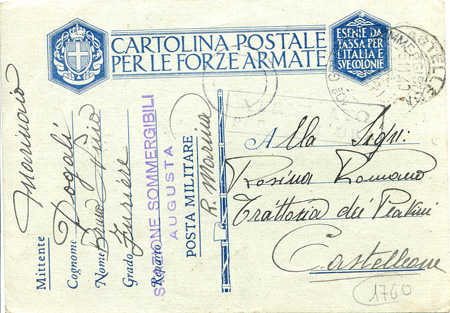 CARTOLINA POSTALE
PER LE FORZE ARMATE
ESENTE DA
TASSA PER
L'ITALIA E
SVE COLONIE
Alla Sign:
Rosina Romano
Trattoria dei
Castelleone
1760
Mittente
Marinaio
Cognome Dogali
Nome Bruno
Grado Furiere
Reparto
STAZIONE SOMMERGIBILI
AUGUSTA
POSTA MILITARE
R. Marina